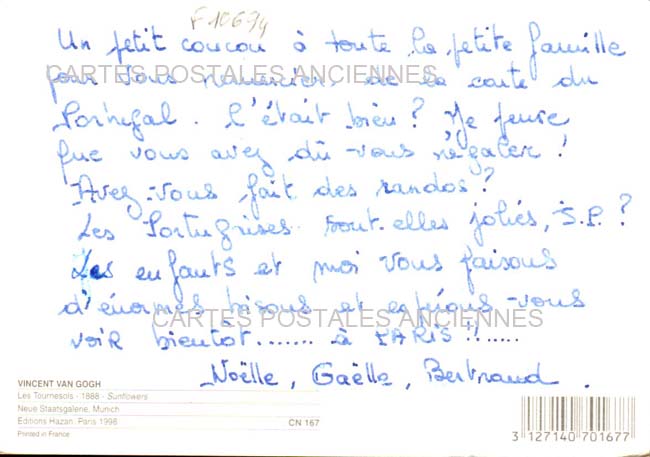 F10694
Un petit coucou à toute la petite famille
CARTES POSTALES ANCIENNES
pour vous remercier de la carte du
Portugal. C'était bien? Je pense
que vous avez dû vous régaler!
Avez-vous fait des randos?
Les Portugaises sont-elles jolies, S.P.?
Les enfants et moi vous faisons
d'énormes bisous et espérons vous
CARTES POSTALES ANCIENNES
voir bientot........ à PARIS!!......
Noëlle, Gaëlle, Bertrand.
VINCENT VAN GOGH
Les Tournesols - 1888 - Sunflowers
Neue Staatsgalerie, Munich
Editions Hazan, Paris 1996
CN 167
Printed in France
3 127140 701677